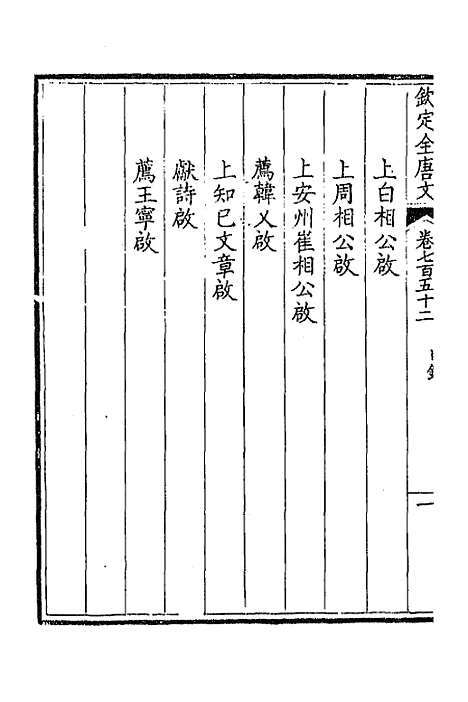 欽定全唐文 卷七百五十二 目錄 一
上白相公啟
上周相公啟
上安州崔相公啟
薦韓乂啟
上知己文章啟
獻詩啟
薦王寧啟